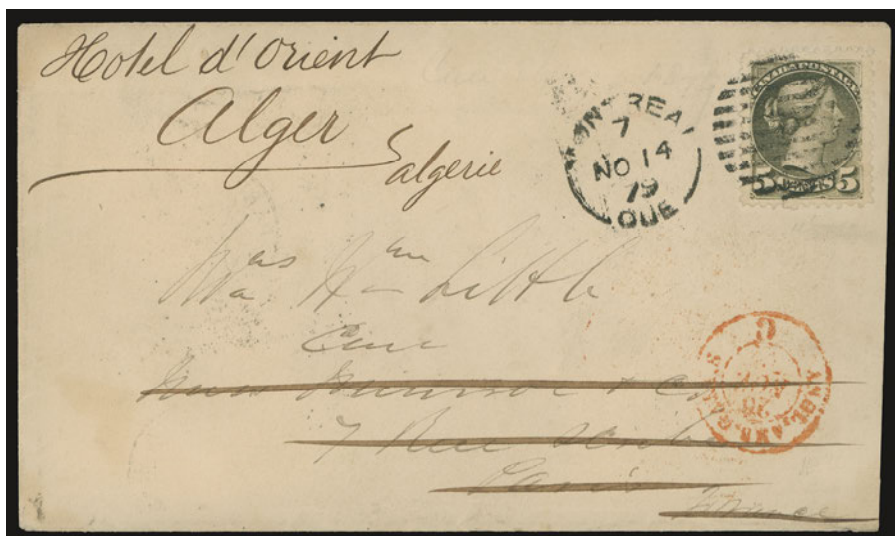 Hotel d'Orient
Alger
algerie
MONTREAL
7
NO 14
79
QUE
CANADA POSTAGE
5 CENTS 5
Little
Care
Munroe & Co
7 Rue Scribe
Paris
France